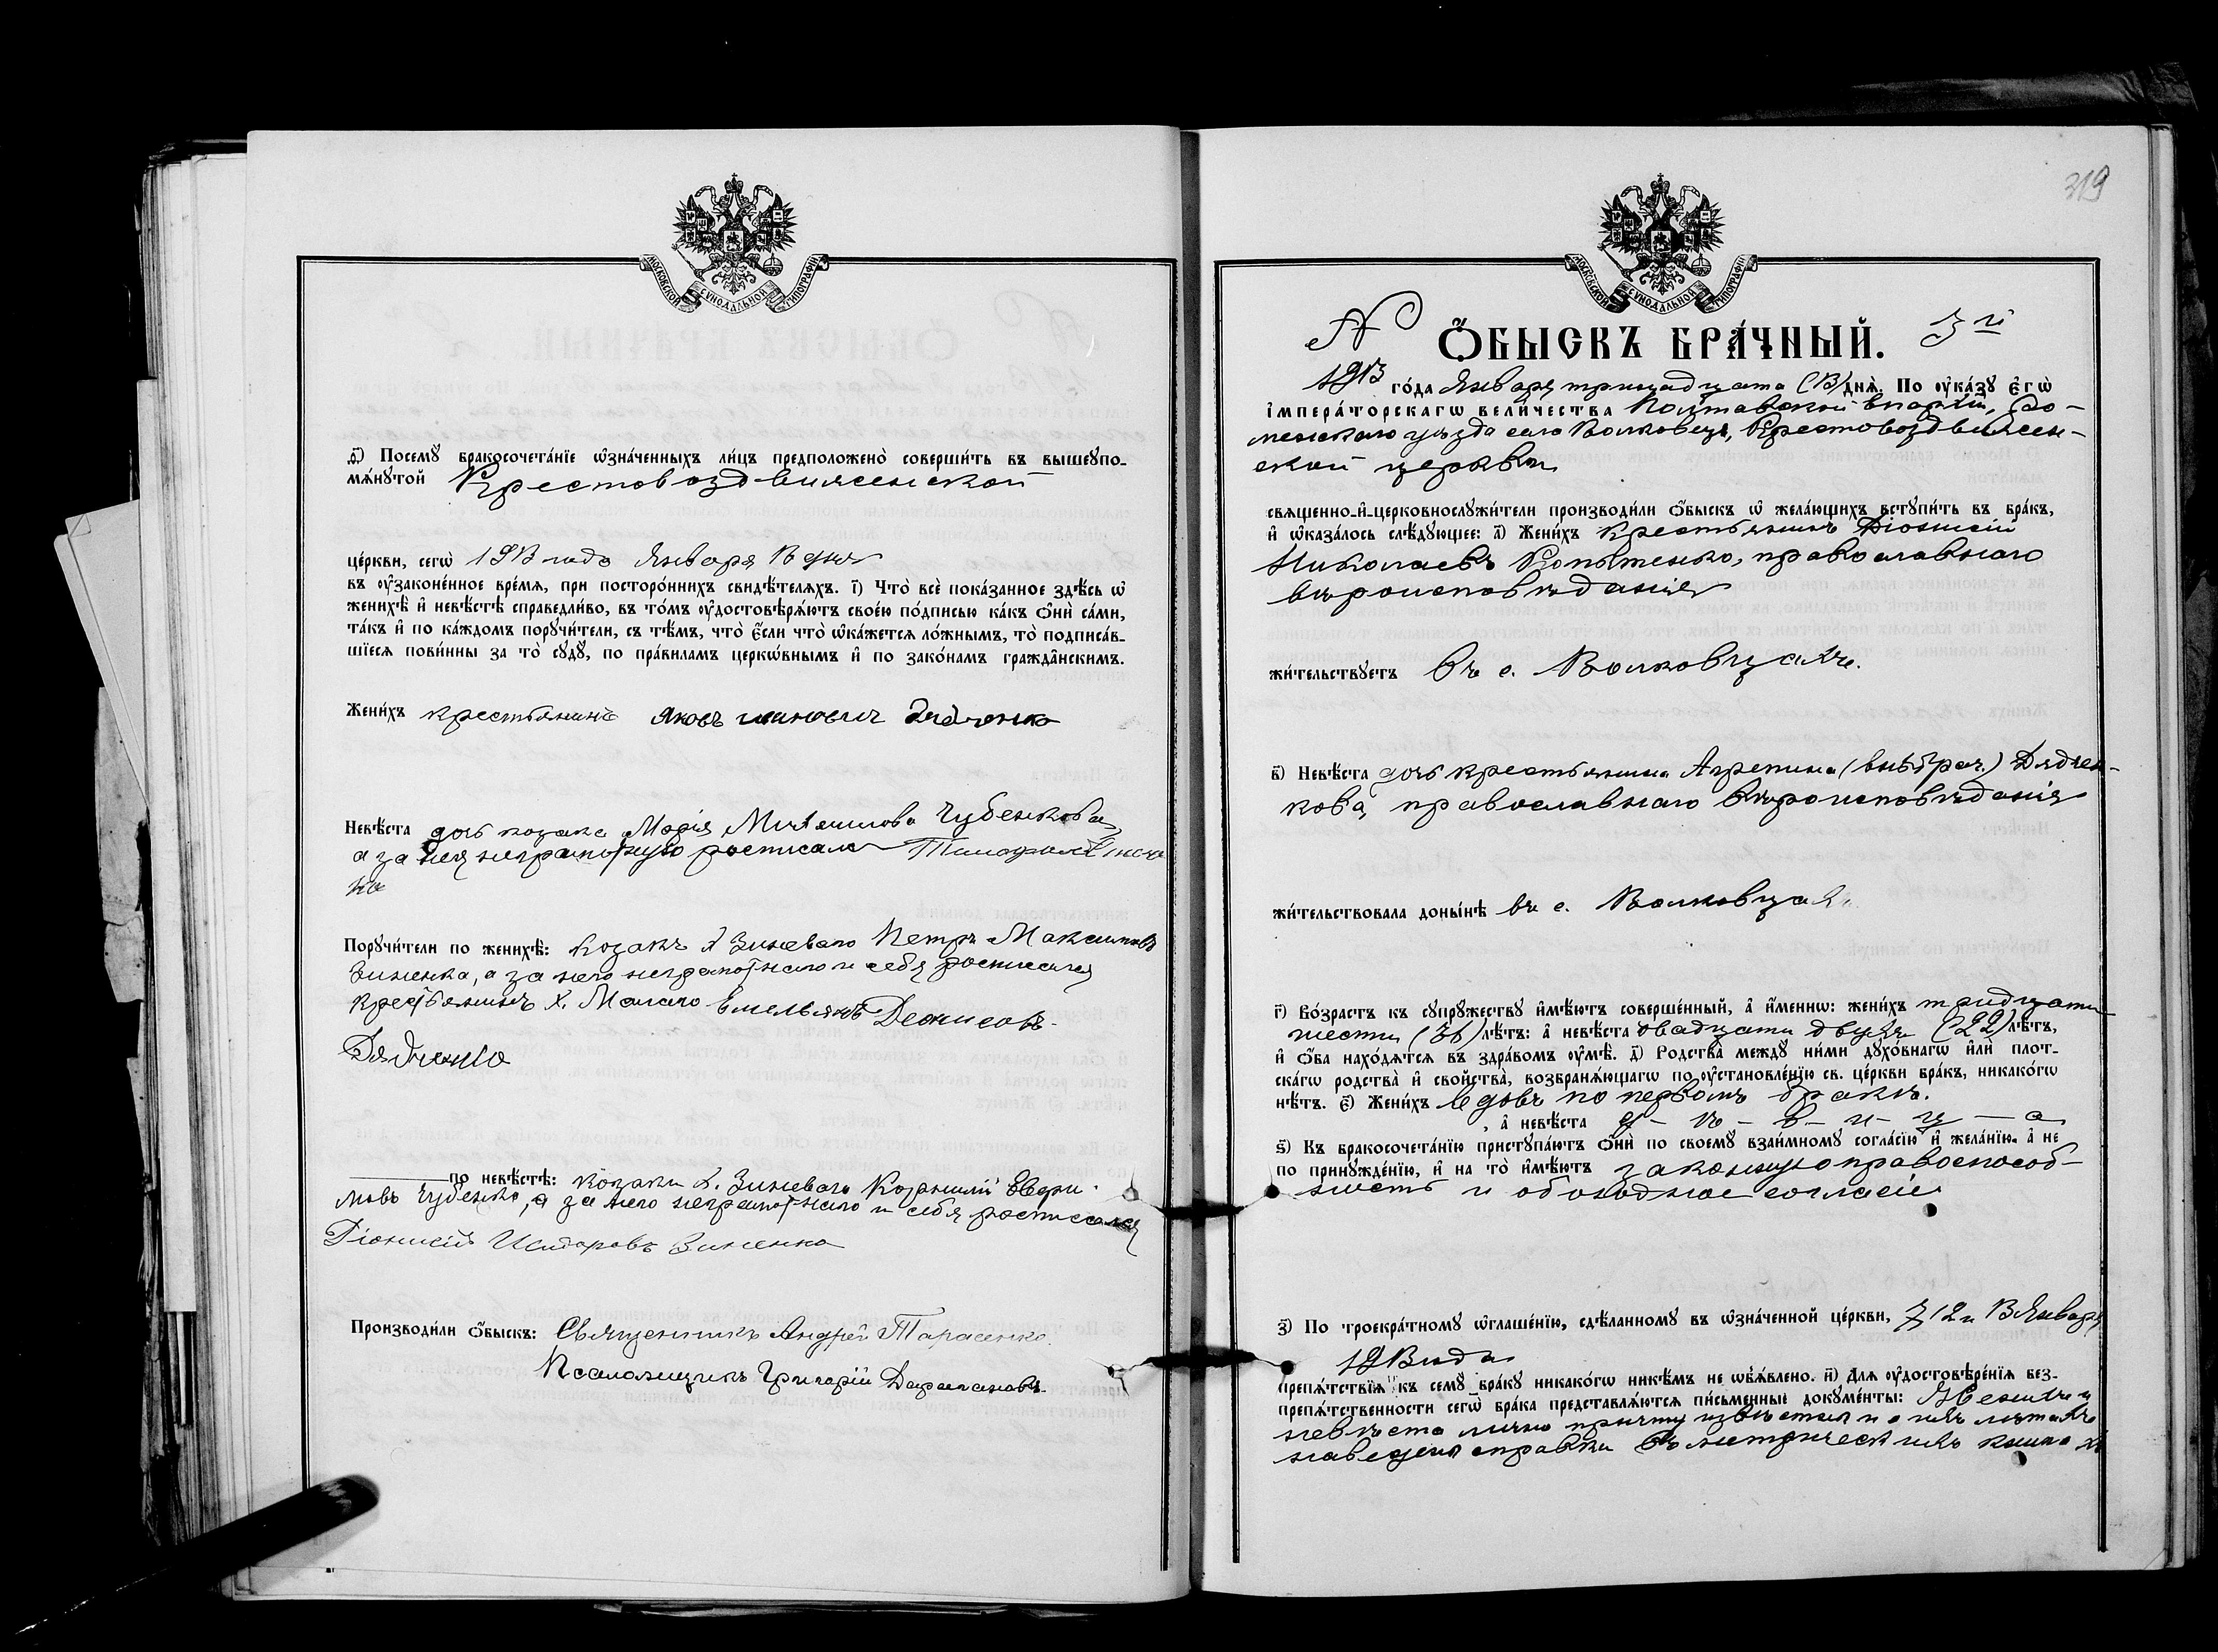 МОСКОВСКОЙ СѴНОДАЛЬНОЙ ТИПОГРАФІИ
ѳ҃) Посемꙋ бракосочета́нїе ѡ҆зна́ченныхъ ли́цъ предположено̀ соверши́ть въ вышеꙋпо-
мѧ́нꙋтой Крестовоздвиженской
це́ркви, сегѡ̀ 1913 года Января 13 дня
въ ᲂу҆законе́нное вре́мѧ, при посторо́ннихъ свидѣ́телѧхъ. і҃) Что̀ всѐ пока́занное здѣ́сь ѡ҆
женихѣ̀ и҆ невѣ́стѣ справедли́во, въ то́мъ ᲂу҆достовѣрѧ́ютъ свое́ю по́дписью ка́къ ѻ҆нѝ са́ми,
та́къ и҆ по ка́ждомъ порꙋчи́тели, съ тѣ́мъ, что̀ є҆́сли что̀ ѡ҆ка́жетсѧ ло́жнымъ, то̀ подписа́в-
шїесѧ пови́нны за то̀ сꙋдꙋ̀, по пра́виламъ церкѡ́внымъ и҆ по зако́намъ гражда̑нскимъ.
Жени́хъ крестьянинъ Яковъ Дядченко
Невѣ́ста дочь козака Марія Чубенкова,
а за нея неграмотную росписался
ко
Порꙋчи́тели по женихѣ̀: Козакъ х Зиневаго Петръ Максимовъ
Зиненко, а за него неграмотнаго и себя росписался
крестьянинъ х. Малаго Емельянъ Денисовъ
Дядченко
по невѣ́стѣ: козаки х. Зиневаго Корнилій
мовъ Чубенко, а за него неграмотнаго и себя росписался
Діонисій Исидоровъ Зиненко
Производи́ли ѻ҆́быскъ: Священникъ Андрей Тарасенко.
Псаломщикъ Григорій
319
МОСКОВСКОЙ СѴНОДАЛЬНОЙ ТИПОГРАФІИ
N ѺБЫСКЪ БРА́ЧНЫЙ. 3й
1913 го́да Января тринадцата (13) днѧ̀. По ᲂу҆ка́зꙋ є҆гѡ̀
і҆мпера́торскагѡ вели́чества Полтавской епархіи, Ро-
менскаго уѣзда села Волковецъ, Крестовоздвижен-
ской церкви
свѧщенно-и҆-церковнослꙋжи́тели производи́ли ѻ҆́быскъ ѡ҆ жела́ющихъ встꙋпи́ть въ бра́къ,
и҆ ѡ҆каза́лось слѣ́дꙋющее: а҃) Жени́хъ крестьянинъ Діонисій
Николаевъ Копытенко, православнаго
вѣроисповѣданія
жи́тельствꙋетъ въ с. Волковцахъ.
в҃) Невѣ́ста дочь крестьянина Агрепина (внѣбрач.) Дядчен-
кова, православнаго вѣроисповѣданія
жи́тельствовала доны́нѣ въ с. Волковцахъ
г҃) Во́зрастъ къ сꙋпрꙋ́жествꙋ и҆мѣ́ютъ соверше́нный, а҆ и҆́меннѡ: жени́хъ тридцати
шести (36) лѣ́тъ: а҆ невѣ́ста двадцати двухъ (22) лѣ́тъ,
и҆ ѻ҆́ба нахо́дѧтсѧ въ здра́вомъ ᲂу҆мѣ̀. д҃) Родства̀ междꙋ ни́ми дꙋхо́внагѡ и҆лѝ плот-
ска́гѡ родства̀ и҆ сво́йства̀, возбранѧ́ющагѡ по ᲂу҆становле́нїю св. це́ркви бра́къ, никако́гѡ
нѣ́тъ. є҃) Жени́хъ вдовъ по первомъ бракѣ.
, а҆ невѣ́ста д-ѣ-в-и-ц-а
ѕ҃) Къ бракосочета́нїю пристꙋпа́ютъ ѻ҆нѝ по своемꙋ̀ взаи́мномꙋ согла́сїю и҆ жела́нїю, а҆ не
по принꙋжде́нїю, и҆ на то̀ и҆мѣ́ютъ законную правоспособ-
ность и обоюдное согласіе
з҃) По троекра́тномꙋ ѡ҆глаше́нїю, сдѣ́ланномꙋ въ ѡ҆зна́ченной це́ркви, 7 12 и 13 Января
1913 года
препѧ́тствїѧ къ семꙋ̀ бра́кꙋ никако́гѡ никѣ́мъ не ѡ҆б̾ѧ́влено. и҃) Длѧ ᲂу҆достовѣре́нїѧ без-
препѧ́тственности сегѡ̀ бра́ка представлѧ́ютсѧ пи́сьменные докꙋме́нты: Женихъ и
невѣста лично причту извѣстны и о ихъ лѣтахъ
наведены справки въ метрическихъ книгахъ